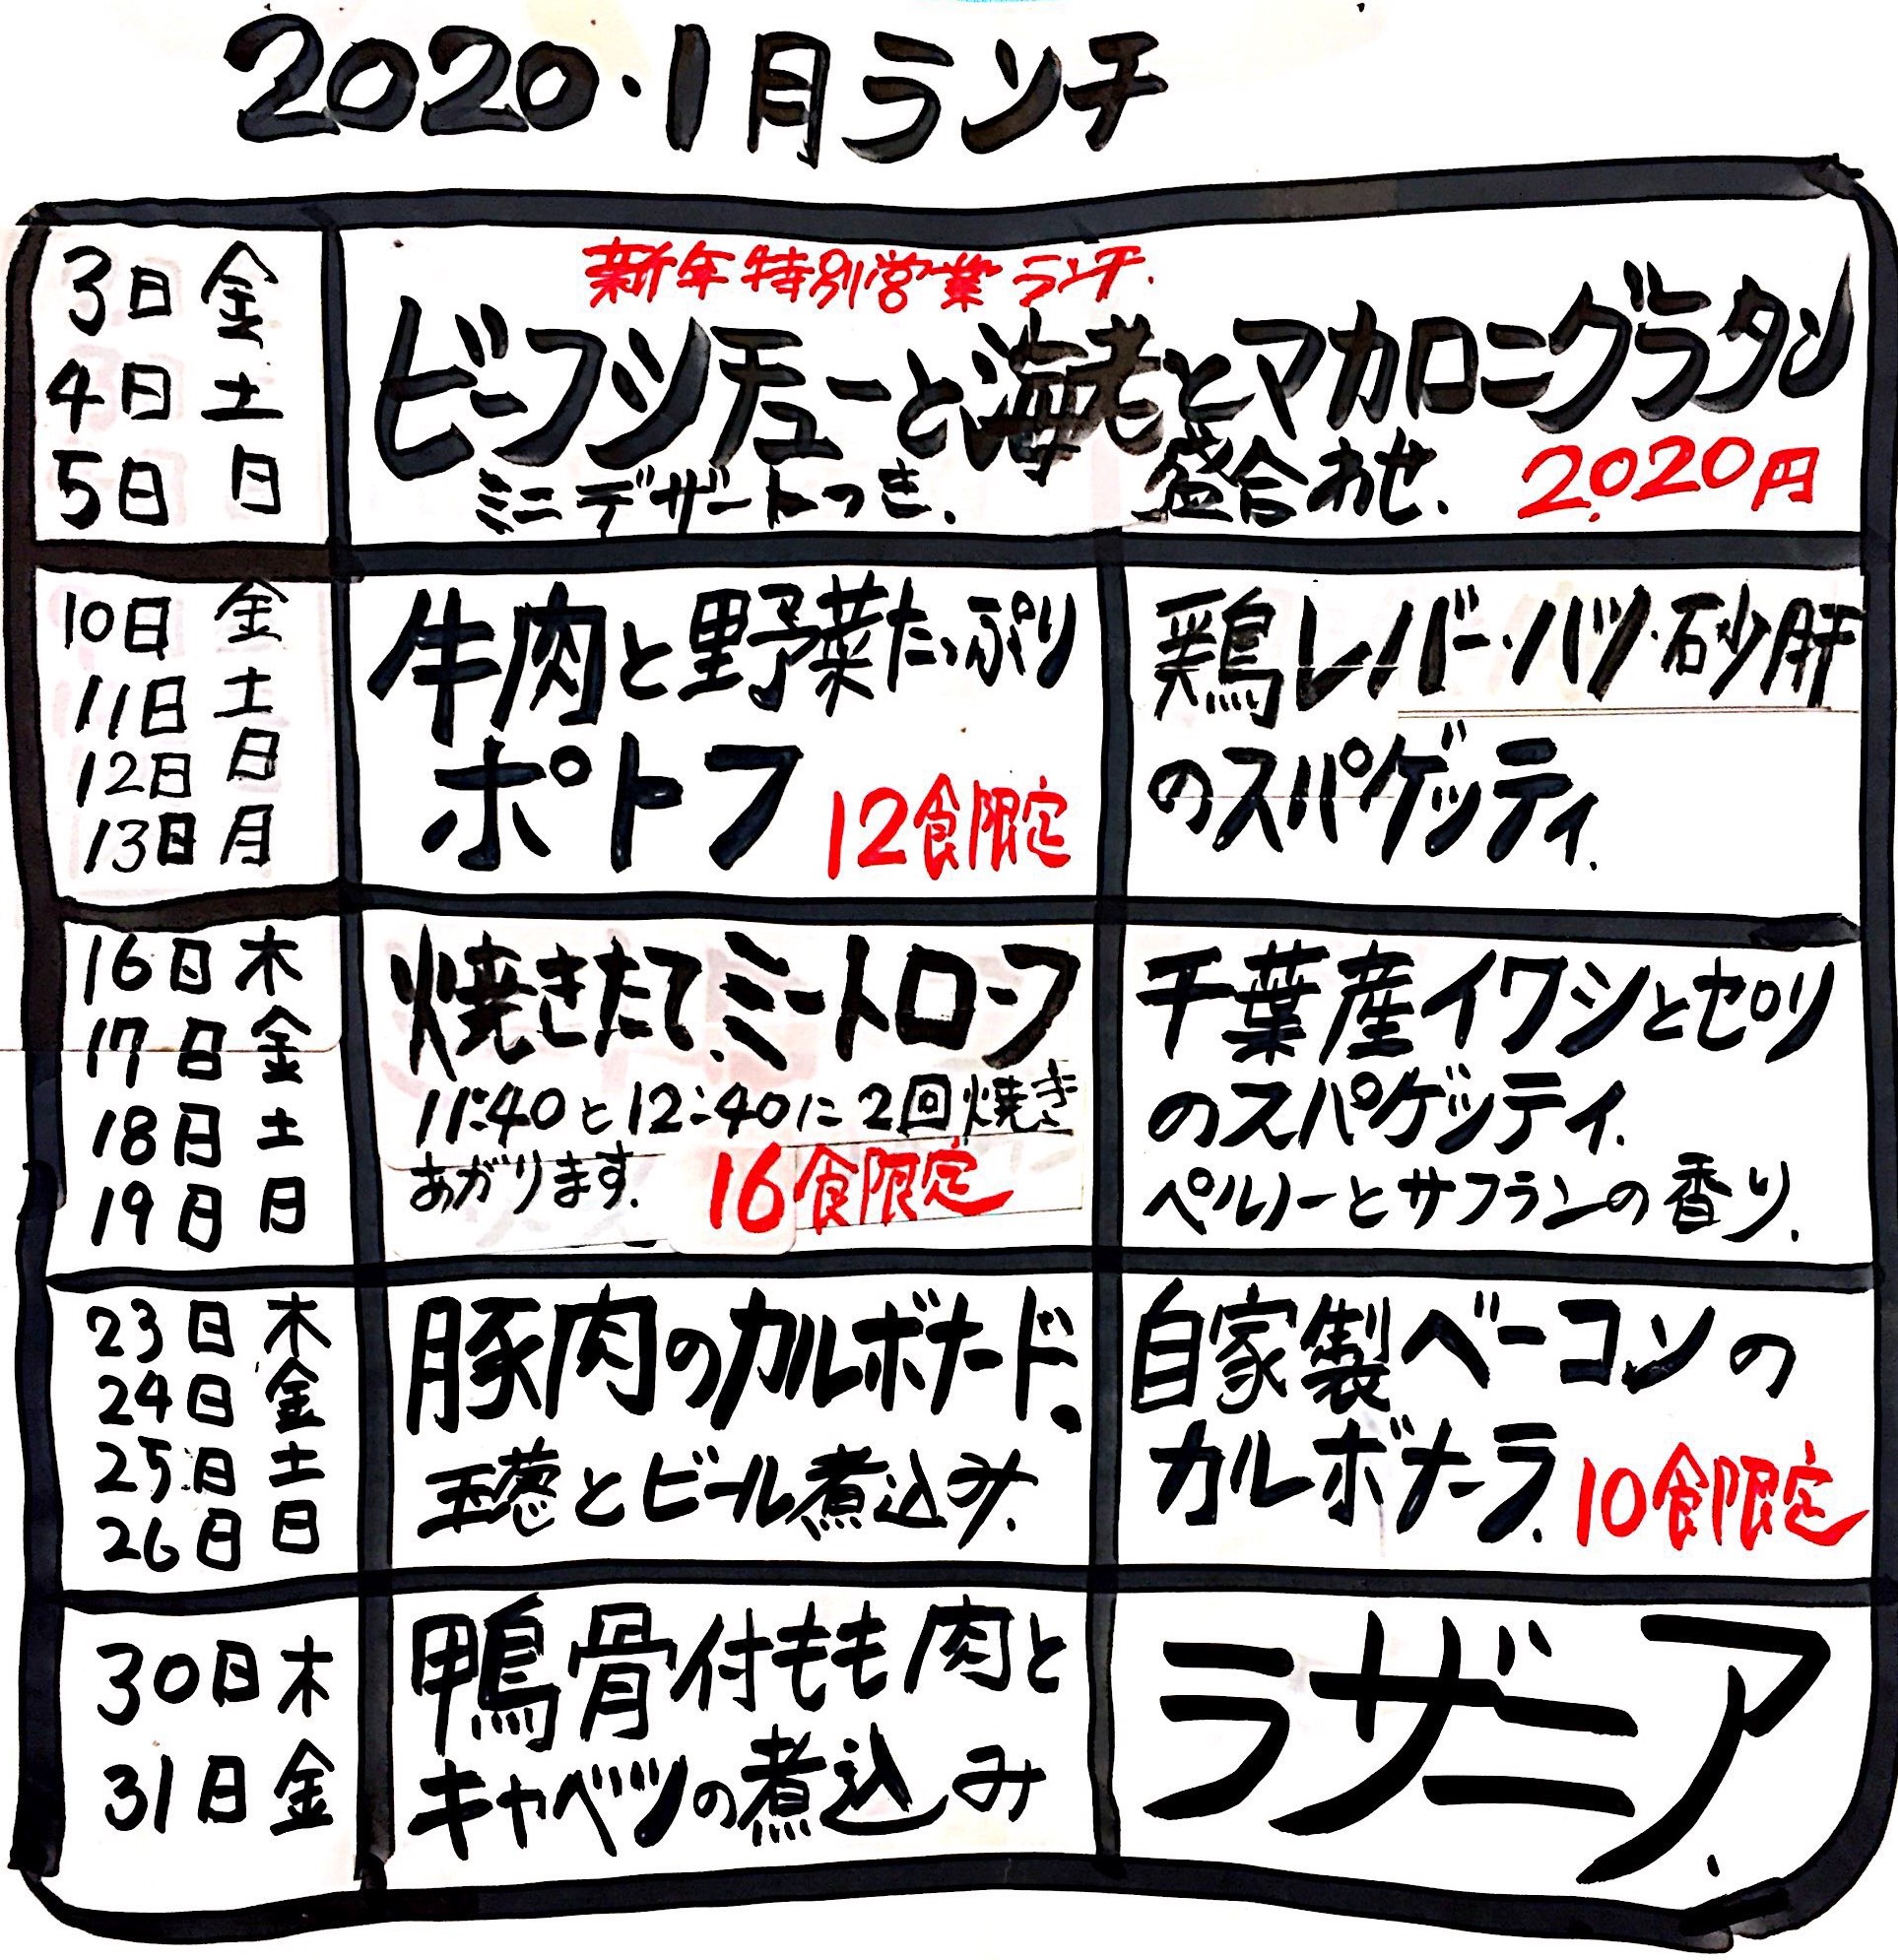 2020・1月ランチ
3日 金
4日 土
5日 日
新年特別営業ランチ.
ビーフシチューと海老とマカロニグラタン
盛合わせ. 2,020円
ミニデザートつき.
10日 金
11日 土
12日 日
13日 月
牛肉と野菜たっぷり
ポトフ 12食限定
鶏レバー・ハツ・砂肝
のスパゲッティ.
16日 木
17日 金
18日 土
19日 日
焼きたて、ミートローフ
11:40と12:40に2回焼き
あがります. 16食限定
千葉産イワシとセロリ
のスパゲッティ.
ペルノーとサフランの香り.
23日 木
24日 金
25日 土
26日 日
豚肉のカルボナード、
玉葱とビール煮込み.
自家製ベーコンの
カルボナーラ. 10食限定
30日 木
31日 金
鴨骨付もも肉と
キャベツの煮込み
ラザニア.